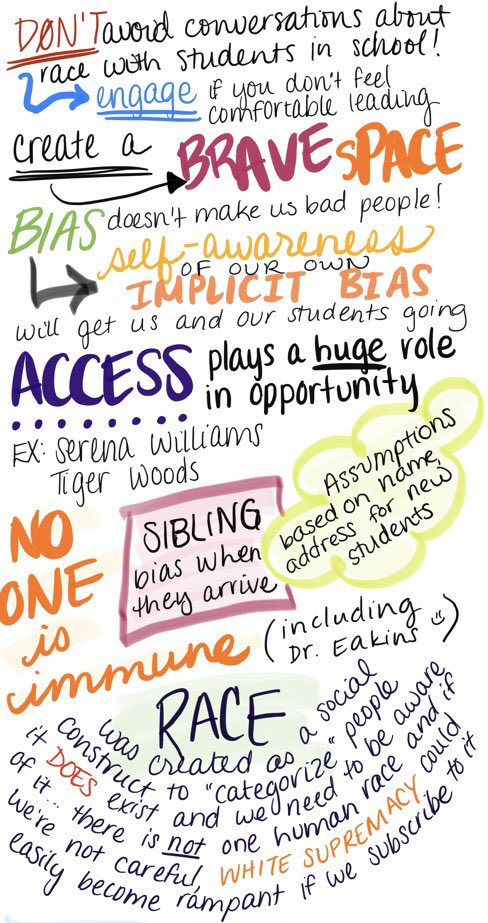 DON'T avoid conversations about
race with students in school!
engage if you don't feel
comfortable leading
create a BRAVE SPACE
BIAS doesn't make us bad people!
self-awareness
OF OUR OWN
IMPLICIT BIAS
will get us and our students going
ACCESS plays a huge role
in opportunity
EX: Serena Williams
Tiger Woods
Assumptions
based on name,
address for new
students
SIBLING
bias when
they arrive
NO
ONE
is
immune (including
Dr. Eakins)
RACE
was created as a social
construct to "categorize" people
it DOES exist and we need to be aware
of it... there is not one human race and if
we're not careful, WHITE SUPREMACY could
easily become rampant if we subscribe to it